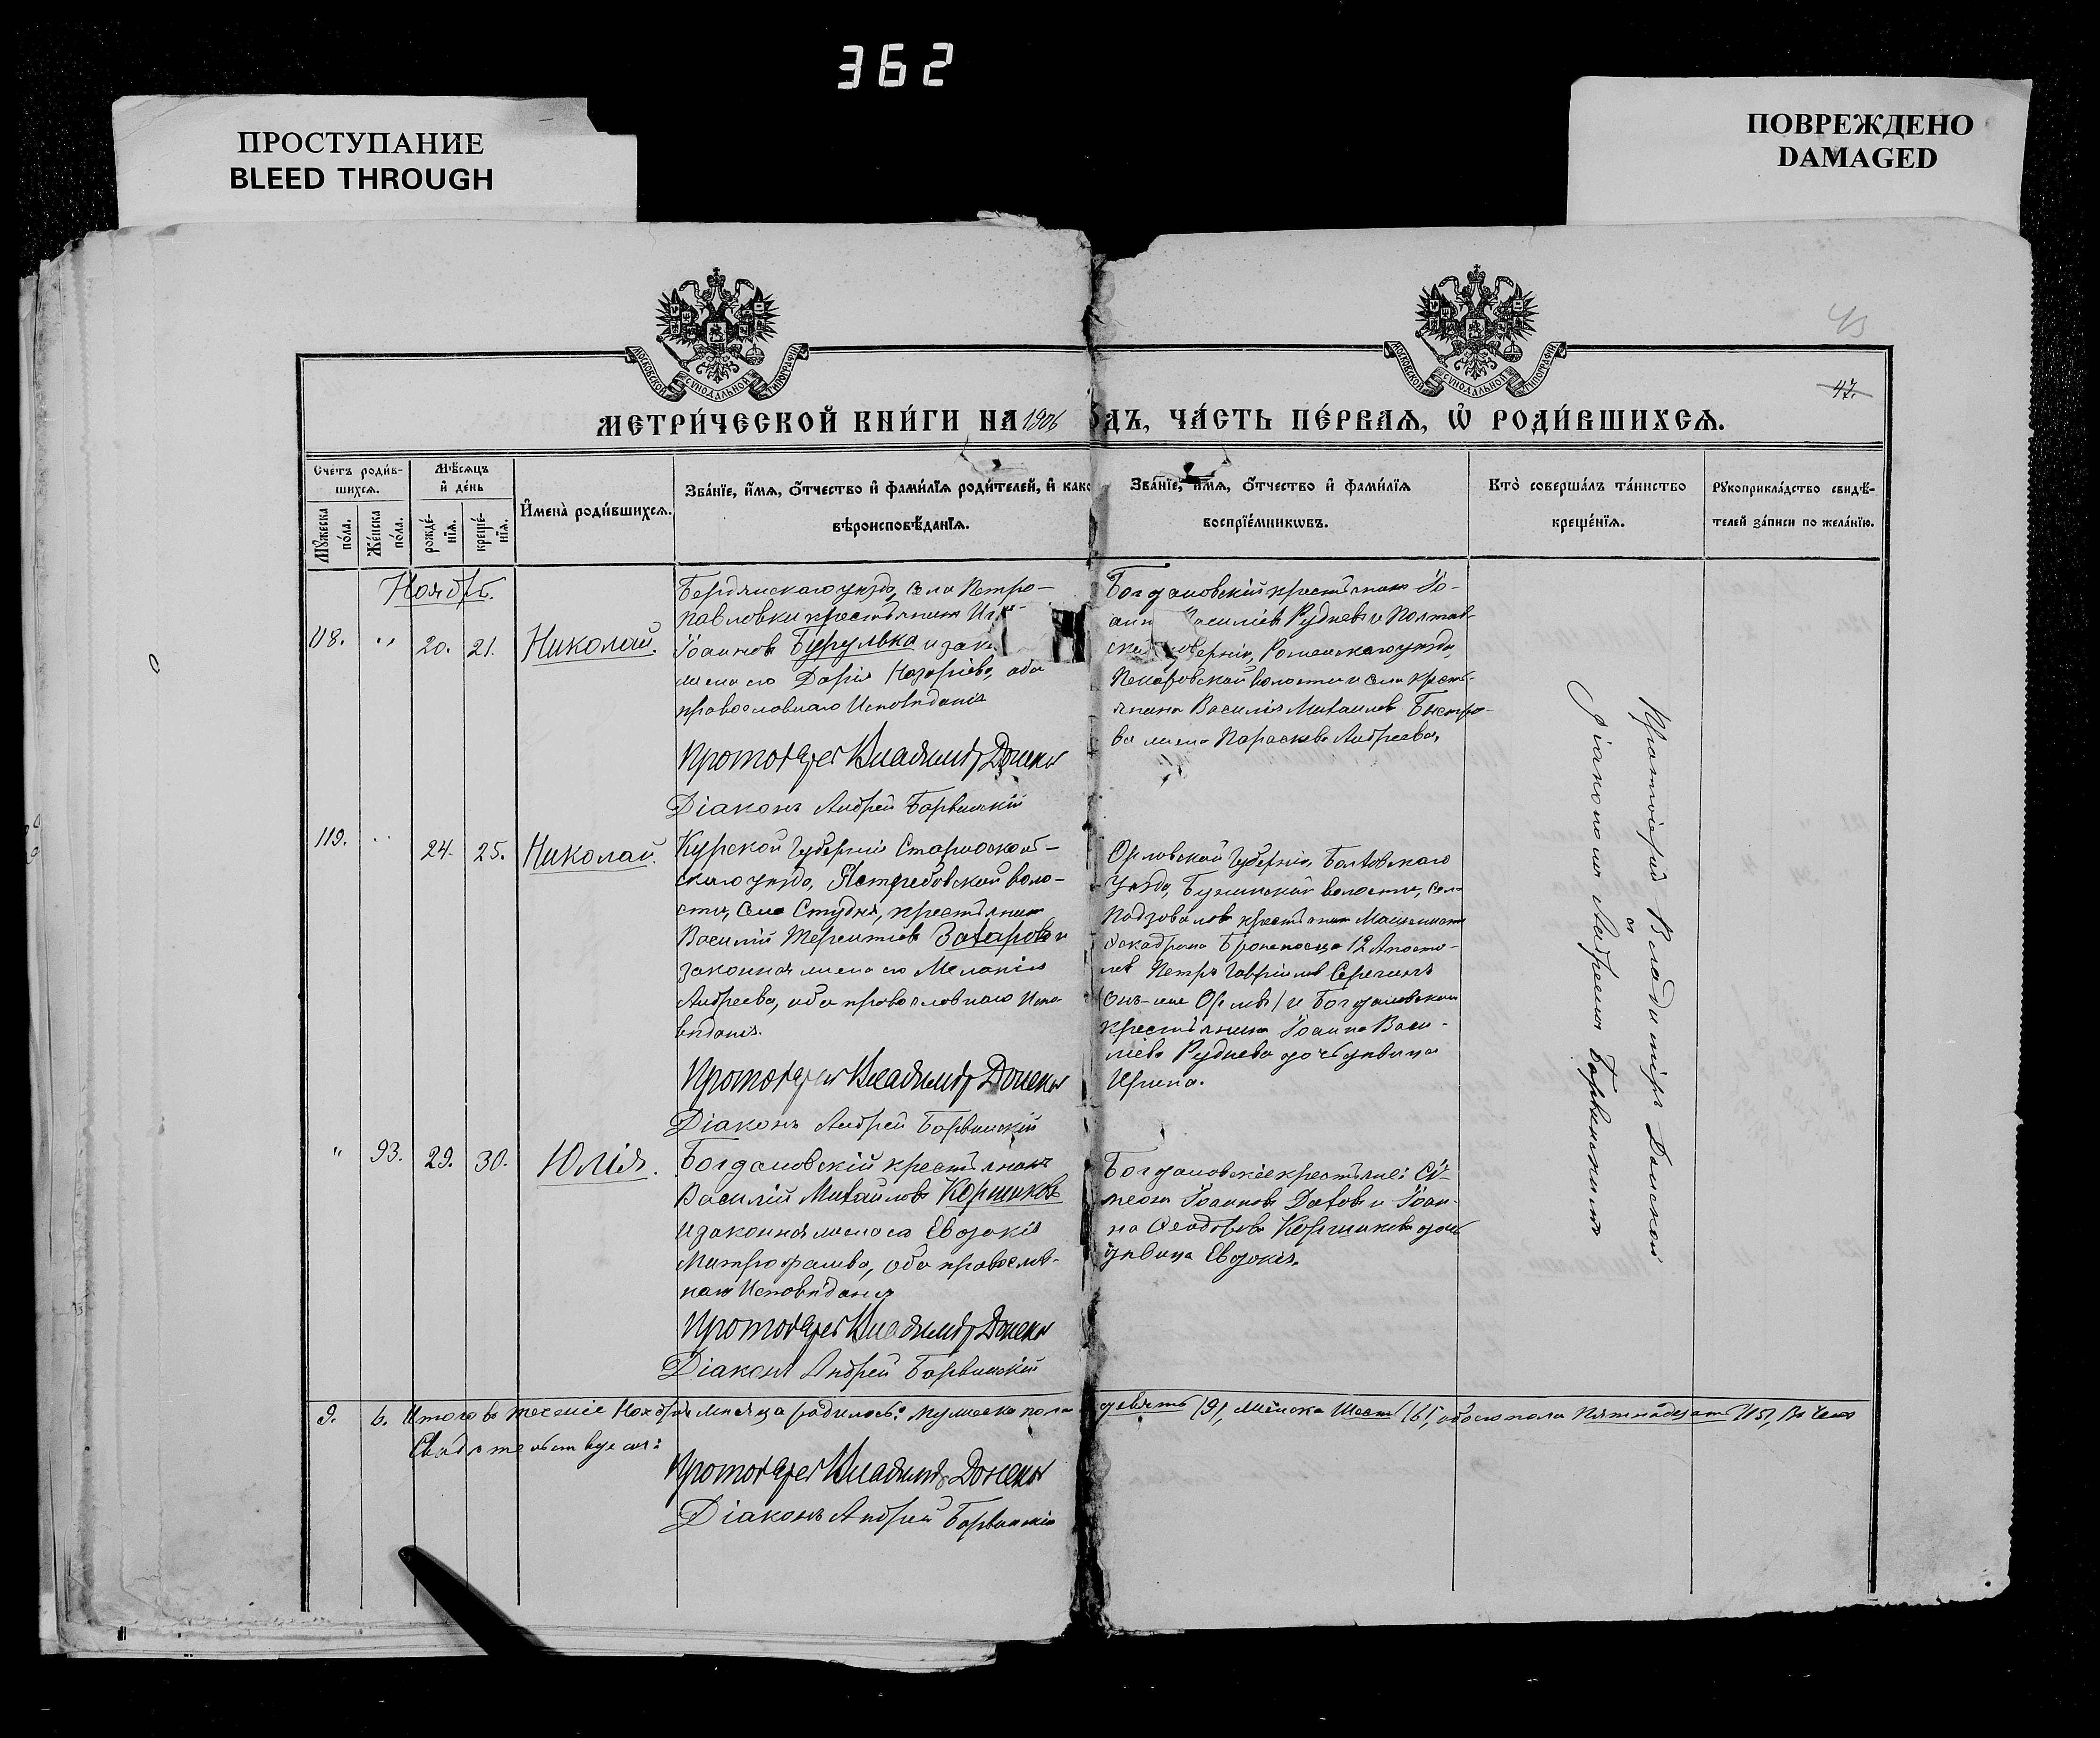 362
ПРОСТУПАНИЕ
BLEED THROUGH
ПОВРЕЖДЕНО
DAMAGED
МОСКОВСКОЙ СѴНОДАЛЬНОЙ ТИПОГРАФІИ
МОСКОВСКОЙ СѴНОДАЛЬНОЙ ТИПОГРАФІИ
47.
МЕТРИ́ЧЕСКОЙ КНИ́ГИ НА 1906 ДЪ, ЧА́СТЬ ПЕ́РВАѦ, Ѡ҆ РОДИ́ВШИХСѦ.
Счетъ роди́в-
шихсѧ.
Мѣсѧцъ
и҆ де́нь
Мꙋжеска
по́ла.
Же́нска
по́ла.
рожде́-
нїѧ.
креще́-
нїѧ.
И҆мена̀ роди́вшихсѧ.
Зва́нїе, и҆́мѧ, ѻ҆́тчество и҆ фами́лїѧ роди́телей, и҆ како
вѣроисповѣ́данїѧ.
Зва́нїе, и҆́мѧ, ѻ҆́тчество и҆ фами́лїѧ
воспрїе́мникѡвъ.
Кто̀ соверша́лъ та́инство
креще́нїѧ.
Рꙋкоприкла́дство свидѣ́-
телей за́писи по жела́нїю.
Ноябрь.
118. " 20. 21. Николай.
Бердянскаго уѣзда, села Петро-
павловки крестьянинъ
Іоанновъ Бурулька и зак
жена его Дарія Назаріева, оба
православнаго Исповѣданія
Протоіерей Владимір Донской
Діаконъ Андрей Барвинскій
Богдановскій крестьянинъ Іо-
анн Василіевъ Рудневъ и Полтав-
ской губерніи, Роменскаго уѣзда,
волости и села кресть-
янина Василія Михаилова Быстро-
ва жена Параскева Андреева,
119. " 24. 25. Николай.
Курской Губерніи Старооскол-
скаго уѣзда, Ястребовской воло-
сти, села Студня, крестьянинъ
Василій Терентіевъ Захаровъ и
законная жена его Меланія
Андреева, оба православнаго Испо
вѣданія.
Протоіерей Владимір Донской
Діаконъ Андрей Барвинскій
Орловской Губерніи, Болховскаго
Уѣзда, волости, сел.
крестьянинъ Машинистъ
Эскадрена Броненосца 12 Апосто-
ловъ Петръ Гавріиловъ Серегинъ
(онъ-же Орловъ) и Богдановскаго
крестьянина Іоанна Васи-
ліева Руднева дочь дѣвица
Ирина.
" 93. 29. 30. Юлія.
Богдановскій крестьянинъ
Василій Михаиловъ Коршиковъ
и законная жена его Евдокія
Митрофанова, оба православ-
наго Исповѣданія
Протоіерей Владимір Донской
Діаконъ Андрей Барвинскій
Богдановскіе крестьяне: Си-
меонъ Іоанновъ и Іоан-
на Ѳеодорова Коршикова дочь
дѣвица Евдокія.
Протоіерей Владиміръ Донской
съ
Діакономъ Андреемъ Барвинскимъ
9. 6. Итого въ теченіе Ноября мѣсяца родилось: мужеска пола девять /9/, женска шесть /6/, обоего пола пятнадцать /15/, въ чемъ
Свидѣтельствуемъ:
Протоіерей Владимір Донской
Діаконъ Андрей Барвинскій